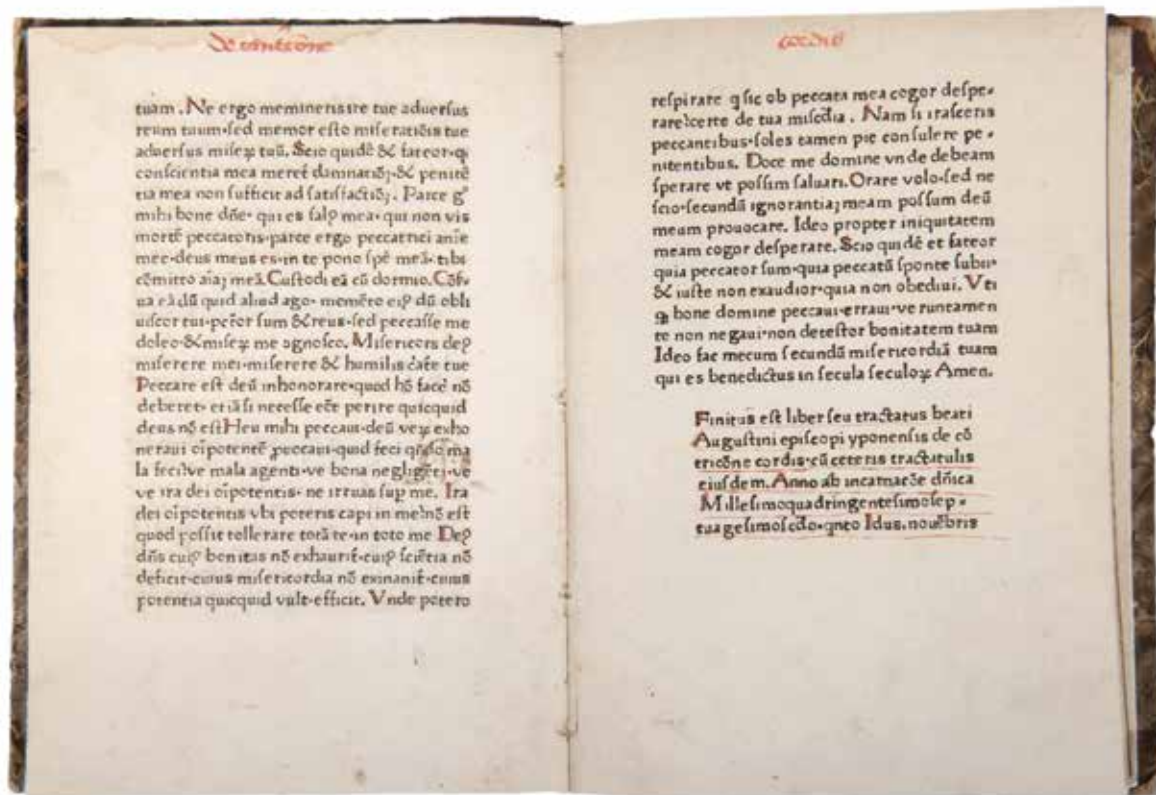 De contricōne
tuam . Ne ergo memineris ire tue aduersus
reum tuum·sed memor esto miseratiōis tue
aduersus miseꝝ tuū. Scio quidē & fateor·q
conscientia mea meret̄ damnatiōꝫ·& penitē
tia mea non sufficit ad satisfactiōꝫ. Parce gͦ
mihi bone dn̄e· qui es salꝰ mea· qui non vis
mortē peccatoris·parce ergo peccatrici anīe
mee·deus meus es·in te pono spē meā·tibi
cōmitto aīaꝫ meā. Custodi eā cū dormio. Cōs̄
ua eā dū quid aliud ago· memēto eiꝰ dū obli
uiscor tui·pctōr sum & reus·sed peccasse me
doleo·& miseꝝ me agnosco. Misericors deꝰ
miserere mei·miserere & humilis c̄ate tue
Peccare est deū inhonorare·quod hō facē nō
deberet·etiāsi necesse eēt perire quicquid
deus nō est Heu mihi peccaui·deū veꝝ exho
neraui oīpotentē ꝓuocaui·quid feci qn̄do ma
la feci?ve mala agenti·ve bona negligēti·ve
ve ira dei oīpotentis· ne irruas suꝑ me. Ira
dei oīpotentis vbi poteris capi in me?nō est
quod possit tollerare totā te·in toto me Deꝰ
dn̄s cuiꝰ bonitas nō exhaurit̄·cuiꝰ sciētia nō
deficit·cuius misericordia nō exinanit̄·cuius
potentia quicquid vult·efficit. Vnde potero
cordis
respirare q sic ob peccata mea cogor despe-
rare?certe de tua misc̄dia . Nam si irasceris
peccantibus·soles tamen pie consulere pe-
nitentibus. Doce me domine vnde debeam
sperare vt possim saluari. Orare volo·sed ne
scio·secundū ignorantiaꝫ meam possum deū
meum prouocare. Ideo propter iniquitatem
meam cogor desperare. Scio quidē et fateor
quia peccator sum·quia peccatū sponte subii·
& iuste non exaudior·quia non obediui. Vti
qꝫ bone domine peccaui·erraui·ve runtamen
te non negaui·non detestor bonitatem tuam
Ideo fac mecum secundū misericordiā tuam
qui es benedictus in secula seculoꝝ Amen.
Finitus est liber seu tractatus beati
Augustini episcopi yponensis de cō
tricōne cordis·cū ceteris tractatulis
eiusdem. Anno ab incarnacōe dn̄ica
Millesimoquadringentesimosep-
tuagesimosc̄do·qnto Idus.nouēbris